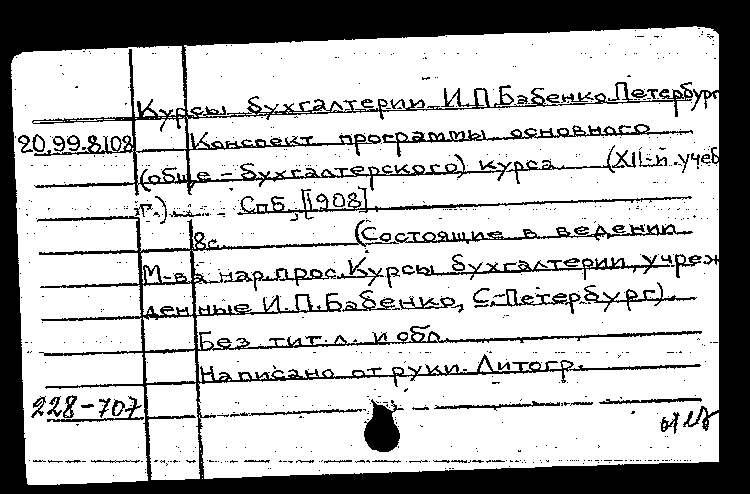 Курсы бухгалтерии И.П.Бабенко.Петербург
20.99.8108 Конспект программы основного
(обще-бухгалтерского) курса (XII-й учеб
г.) СпБ, [1908].
8с. (Состоящие в ведении
М-ва нар.прос.Курсы бухгалтерии, учреж
денные И.П.Бабенко, С.-Петербург).
Без тит.л. и обл.
Написано от руки. Литогр.
228-707